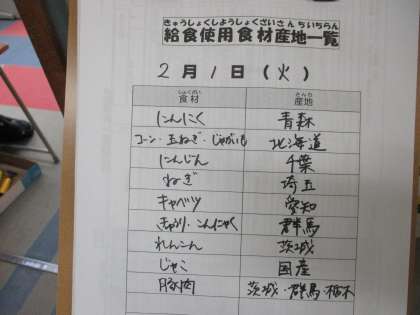 きゅうしょくしようしょくざいさんちいちらん
給食使用食材産地一覧
2月1日(火)
しょくざい さんち
食材 産地
にんにく 青森
コーン・玉ねぎ・じゃがいも 北海道
にんじん 千葉
ねぎ 埼玉
キャベツ 愛知
きゅうり・こんにゃく 群馬
れんこん 茨城
じゃこ 国産
豚肉 茨城・群馬・栃木